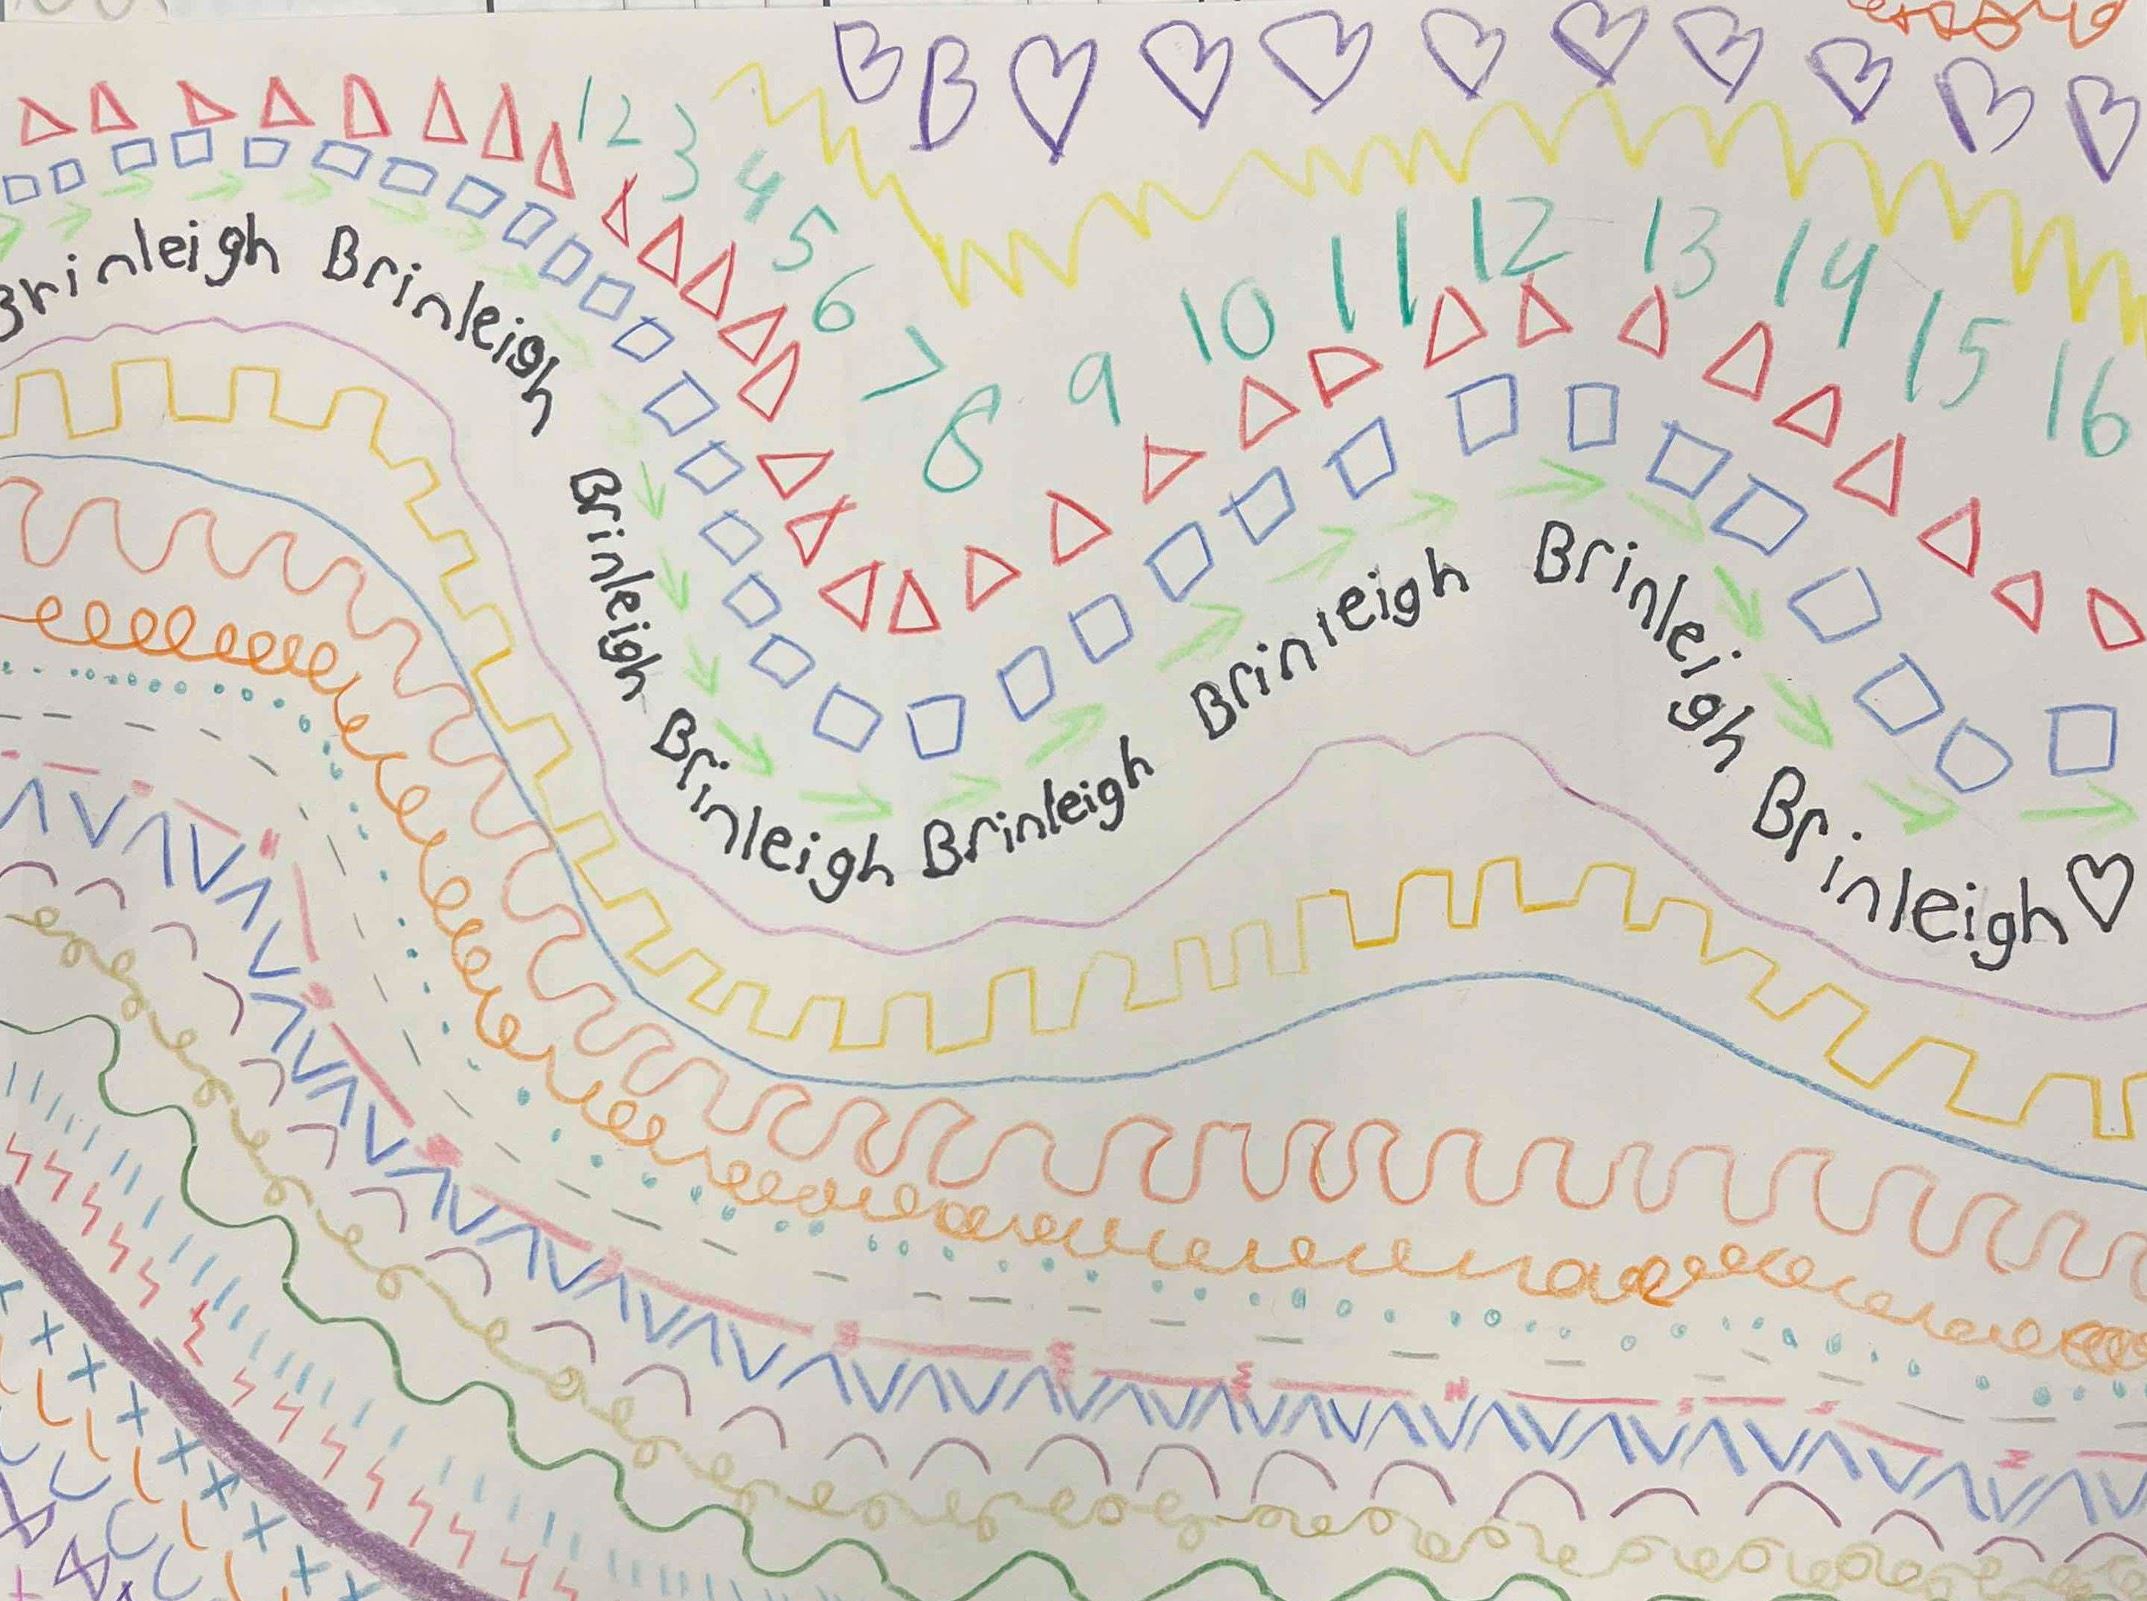 1 2 3 4 5 6 7 8 9 10 11 12 13 14 15 16
Brinleigh Brinleigh Brinleigh Brinleigh Brinleigh Brinleigh Brinleigh Brinleigh♡